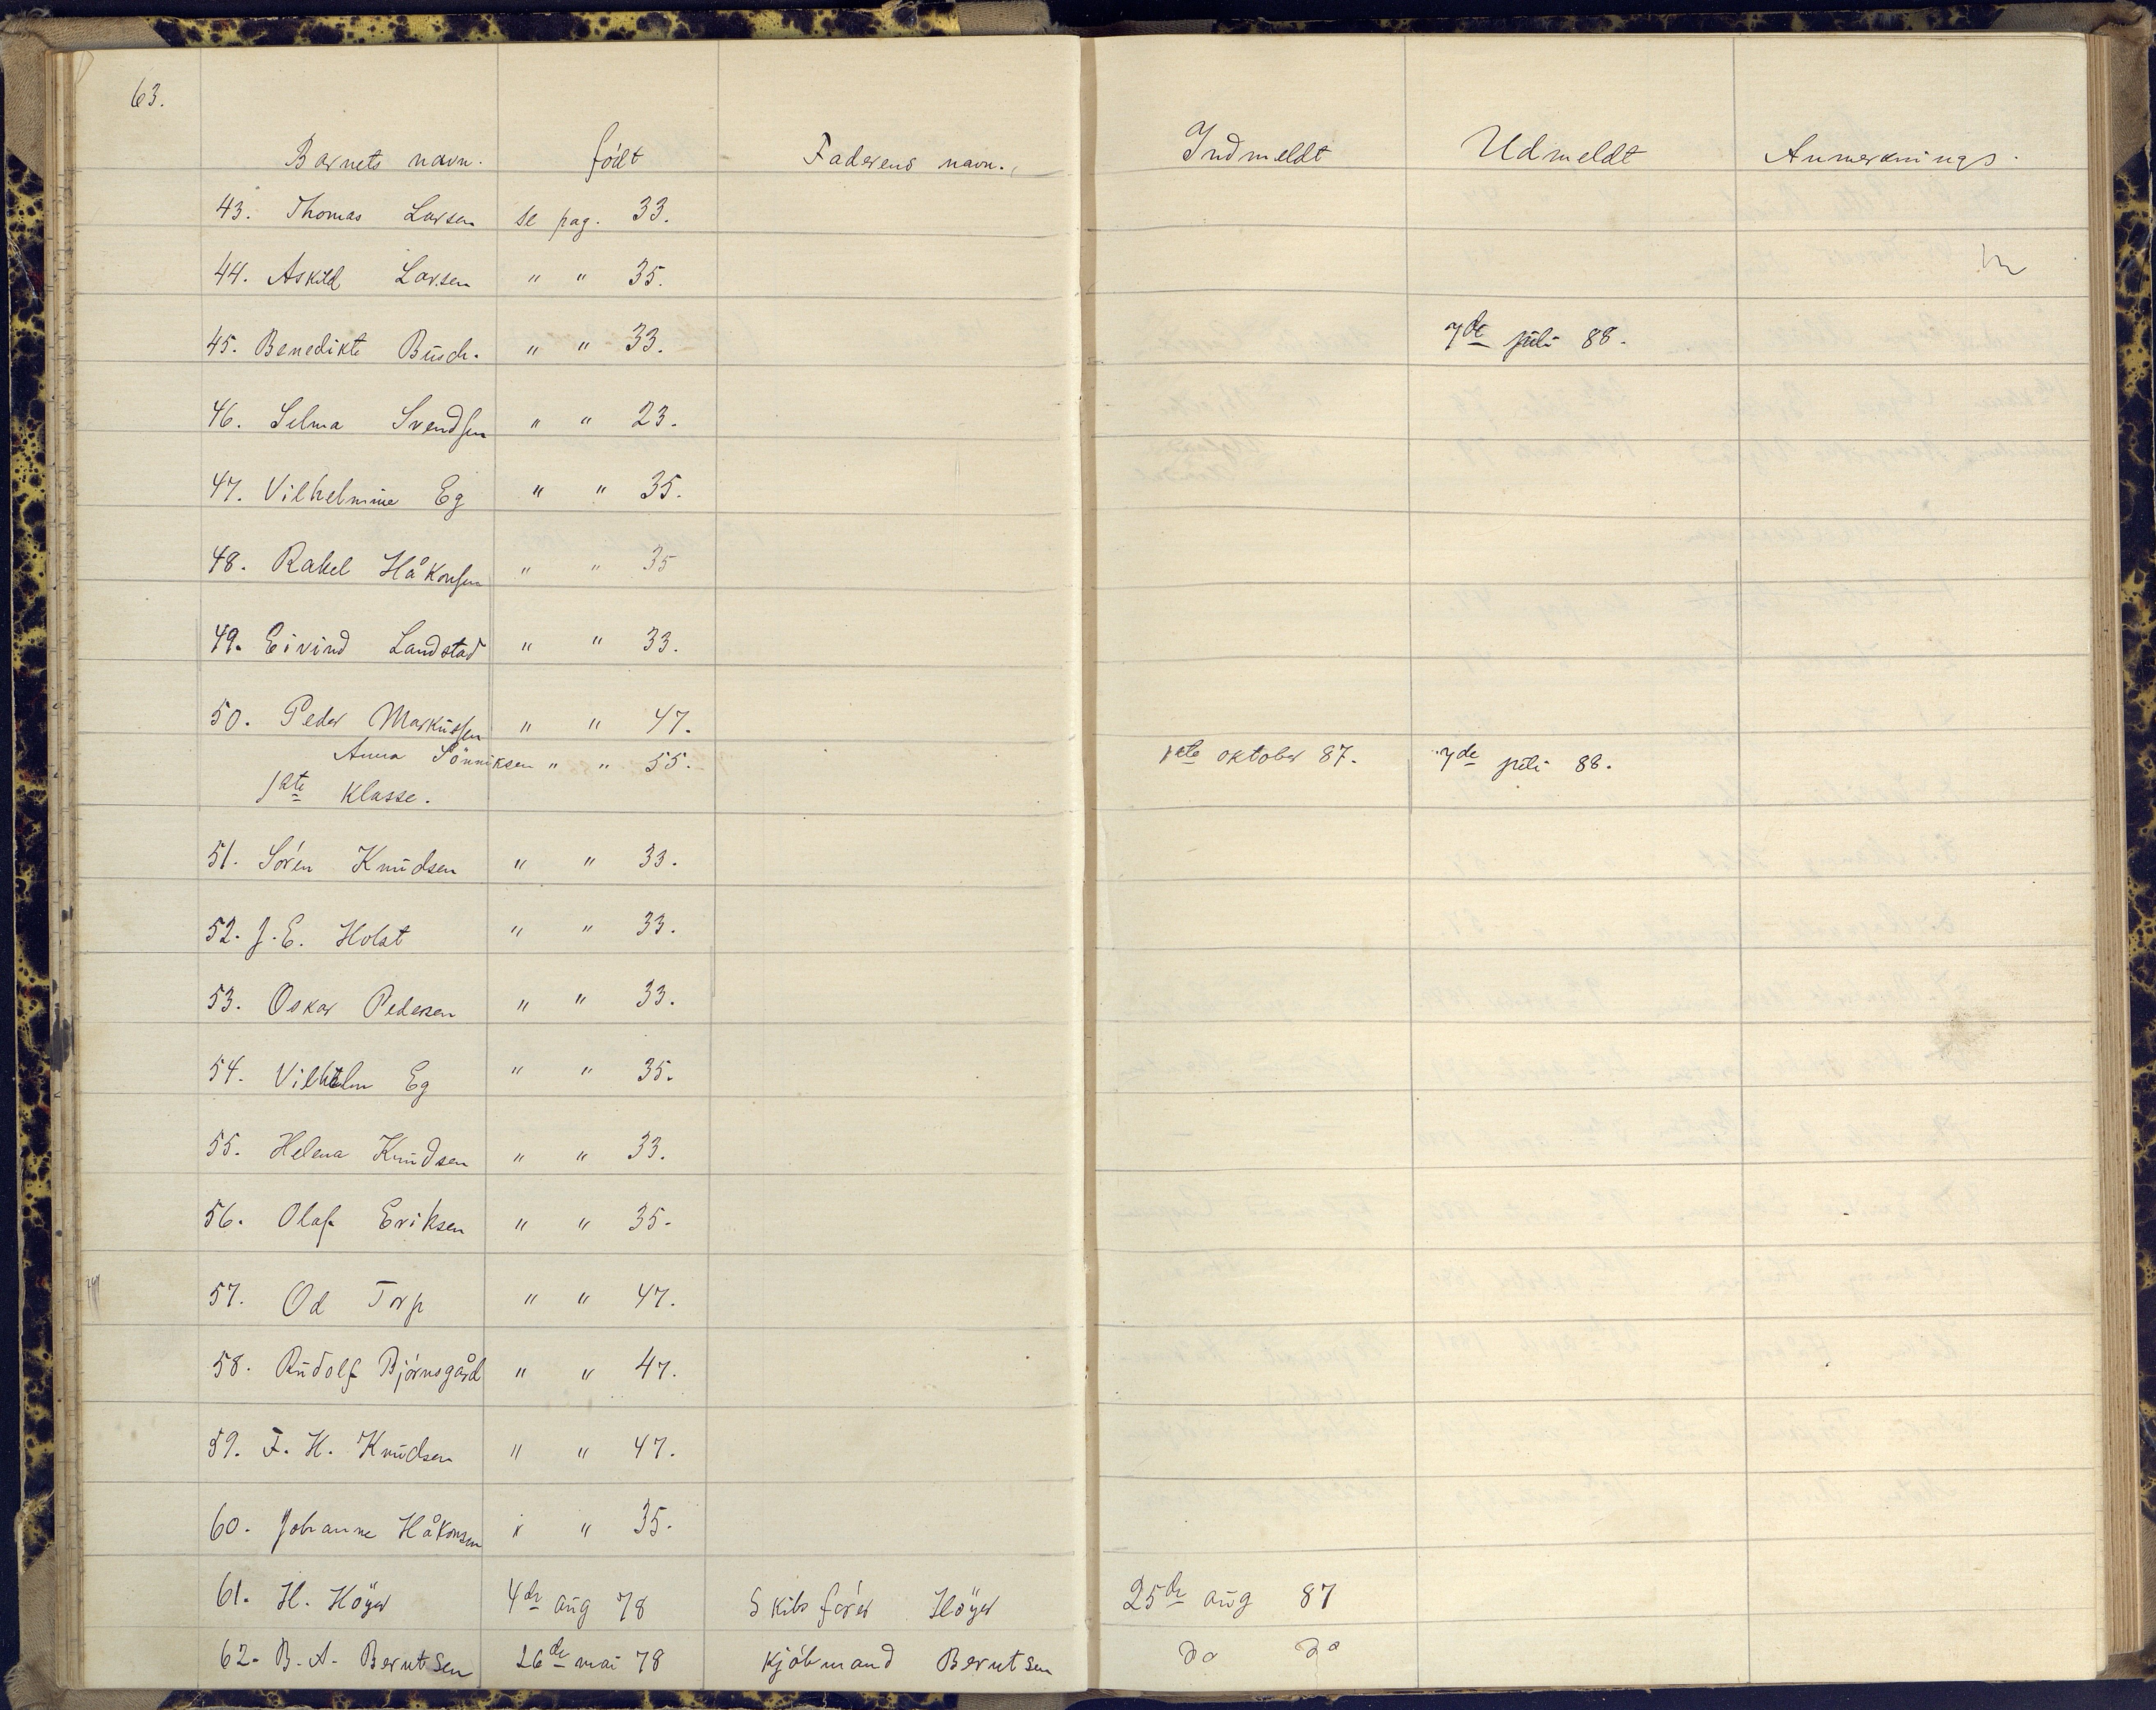 63.
Barnets navn. födt Faderens navn. Indmeldt Udmeldt Anmerknings.
43. Thomas Larsen se pag. 33.
44. Askild Larsen " " 35.
45. Benedikte Busch. " " 33. 7de juli 88.
46. Selma Svendsen " " 23.
47. Vilhelmine Eg " " 35.
48. Rakel Håkonsen " " 35
49. Eivind Landstad " " 33.
50. Peder Markussen " " 47.
Anna Sönniksen " " 55. 1ste oktober 87. 7de juli 88.
1ste klasse.
51. Sören Knudsen " " 33.
52. J. E. Holst " " 33.
53. Oskar Pedersen " " 33.
54. Vilhelm Eg " " 35.
55. Helena Knudsen " " 33.
56. Olaf Eriksen " " 35.
57. Od Torp " " 47.
58. Rudolf Björnsgård " " 47.
59. F. H. Knudsen " " 47.
60. Johanne Håkonsen " " 35.
61. H. Höyer 4de aug 78 Skibsförer Höyer 25de aug 87
62. B. A. Berntsen 26de mai 78 Kjöbmand Berntsen do do